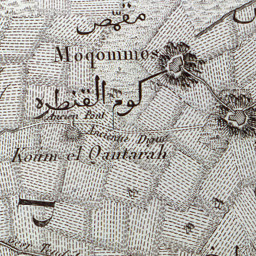 مقمص
Moqommos
كوم القنطره
Ancien Pont
Ancienne Digue
Koum el Qantarah